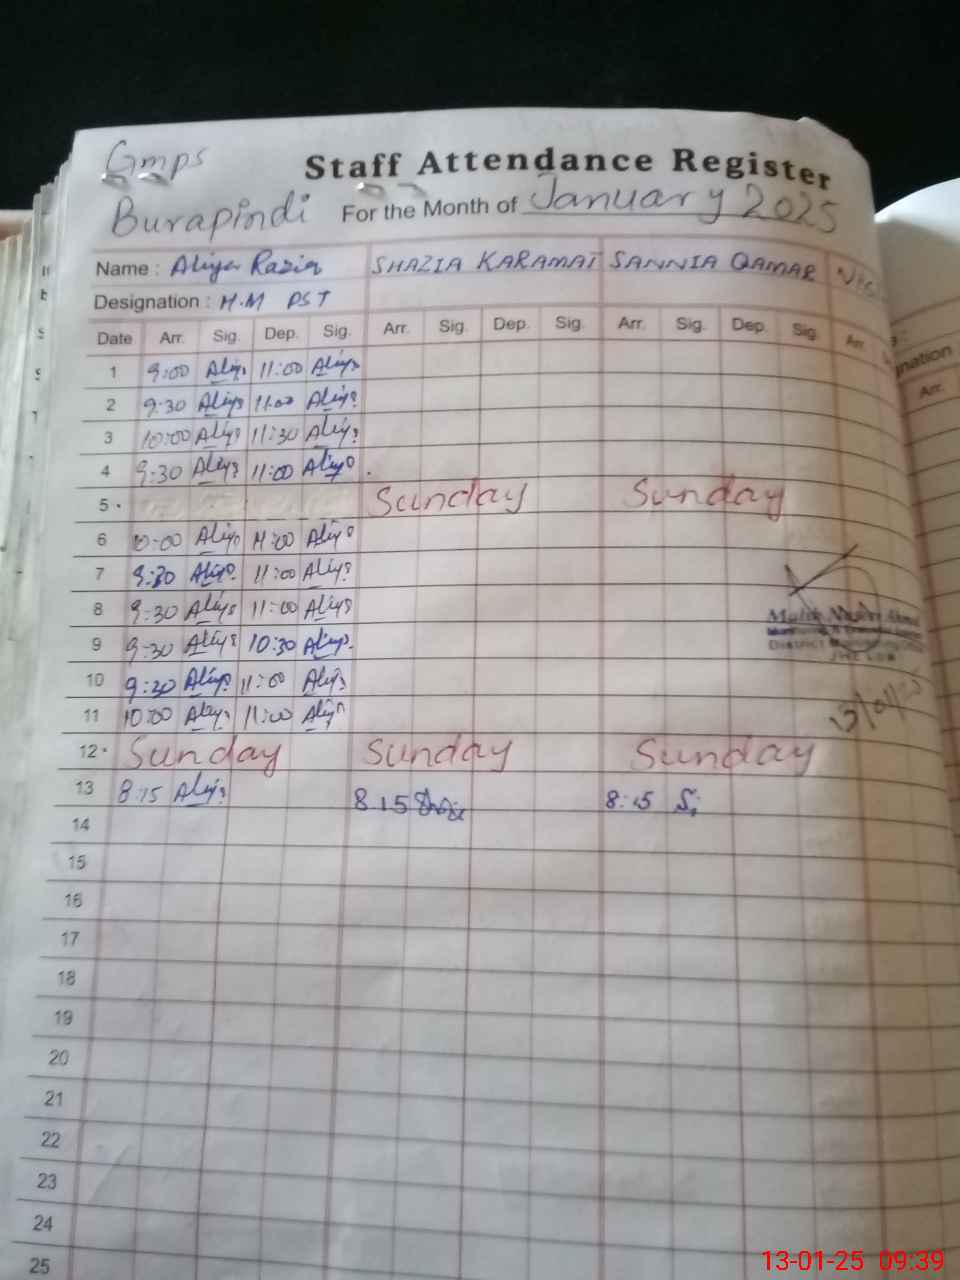 Gmps
Staff Attendance Register
Burapindi For the Month of January 2025
Name : Aliya Razia SHAZIA KARAMAT SANNIA QAMAR
Designation : H.M PST
Date Arr. Sig. Dep. Sig. Arr. Sig. Dep. Sig. Arr. Sig. Dep. Sig. Arr.
1 9:00 Aliya 11:00 Aliya
2 9:30 Aliya 11:00 Aliya
3 10:00 Aliya 11:30 Aliya
4 9:30 Aliya 11:00 Aliya
5 Sunday Sunday
6 10:00 Aliya 11:00 Aliya
7 9:30 Aliya 11:00 Aliya
8 9:30 Aliya 11:00 Aliya
9 9:30 Aliya 10:30 Aliya
10 9:30 Aliya 11:00 Aliya
11 10:00 Aliya 11:00 Aliya
12 Sunday Sunday Sunday
13 8:15 Aliya 8:15 8:15
14
15
16
17
18
19
20
21
22
23
24
25
Arr.
13-01-25 09:39